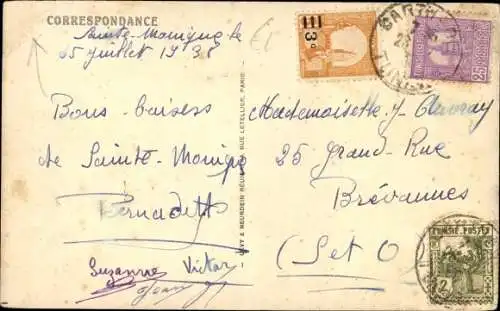 CORRESPONDANCE
Sainte-Monique le
25 juillet 1938
Bons baisers
de Sainte-Monique
Bernadette
Suzanne Victor
Jean
LÉVY & NEURDEIN RÉUNIS, RUE LETELLIER, PARIS
3c
CARTHAGE
TUNISIE
25
Mademoiselle J.
25 Grand-Rue
Brévannes
(S et O)
TUNISIE POSTES
2c